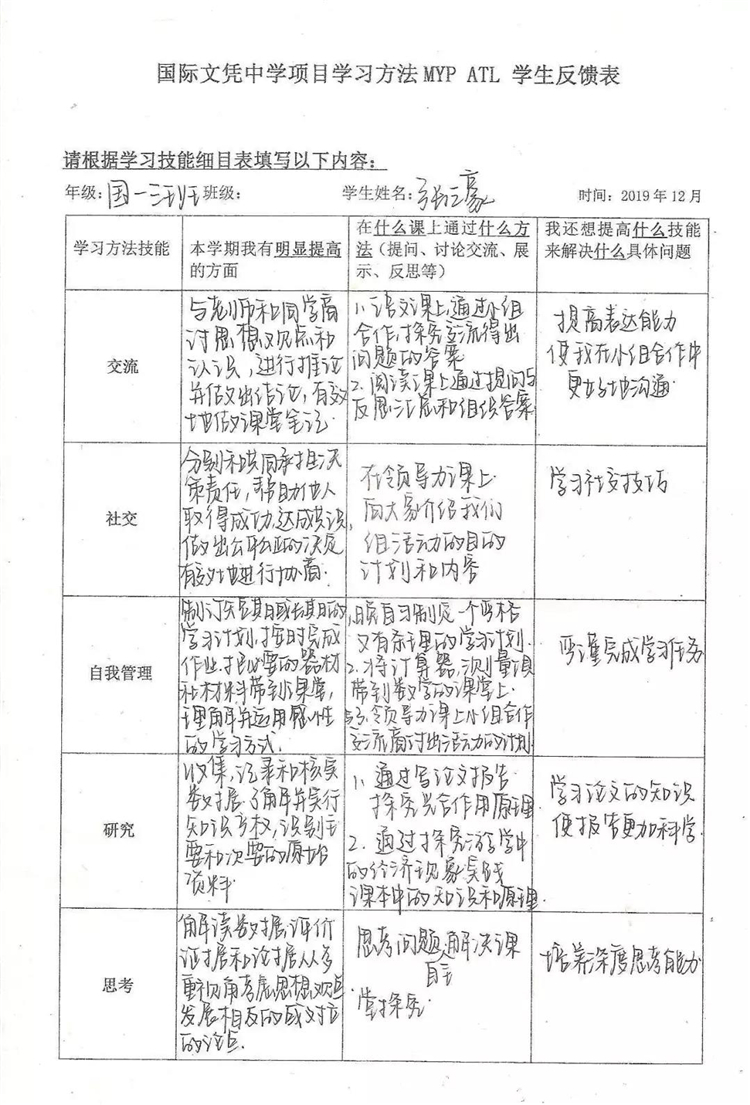 国际文凭中学项目学习方法MYP ATL 学生反馈表
请根据学习技能细目表填写以下内容：
年级：国一三班 班级： 学生姓名： 时间：2019年12月
学习方法技能
本学期我有明显提高
的方面
在什么课上通过什么方
法（提问、讨论交流、展
示、反思等）
我还想提高什么技能
来解决什么具体问题
交流
与老师和同学商
讨思想观点和
认识，进行推论
并做出结论，有效
地做课堂笔记
1、语文课上通过小组
合作，探究交流得出
问题的答案
2、阅读课上通过提问与
反思汇总和组织答案
提高表达能力
使我在小组合作中
更好地沟通
社交
分别和共同承担决
策责任，帮助他人
取得成功，达成共识，
做出公平公正的决定
有效地进行协商.
在领导力课上
向大家介绍我们
组活动的目的
计划和内容
学习社交技巧
自我管理
制订短期或长期的
学习计划，按时完成
作业，把必要的器材
和材料带到课堂，
理解并运用感性
的学习方式.
晚自习制定一个严格
又有条理的学习计划.
2.将计算器，
带到数学的课堂上.
3、领导力课上小组合作
交流商讨出活动的计划
严谨完成学习任务
研究
收集，记录和核实
数据，了解并实行
知识产权，识别主
要和次要的原始
资料
1、通过写论文报告
探究光合作用原理
2、通过探究
的经济现象实践
课本中的知识和原理
学习论文的知识
使报告更加科学.
思考
解读数据，评价
证据和论据从多
重视角考虑思想观点
发展相反的或对立
的论点.
思考问题，解决课
自主
堂探究
培养深度思考能力